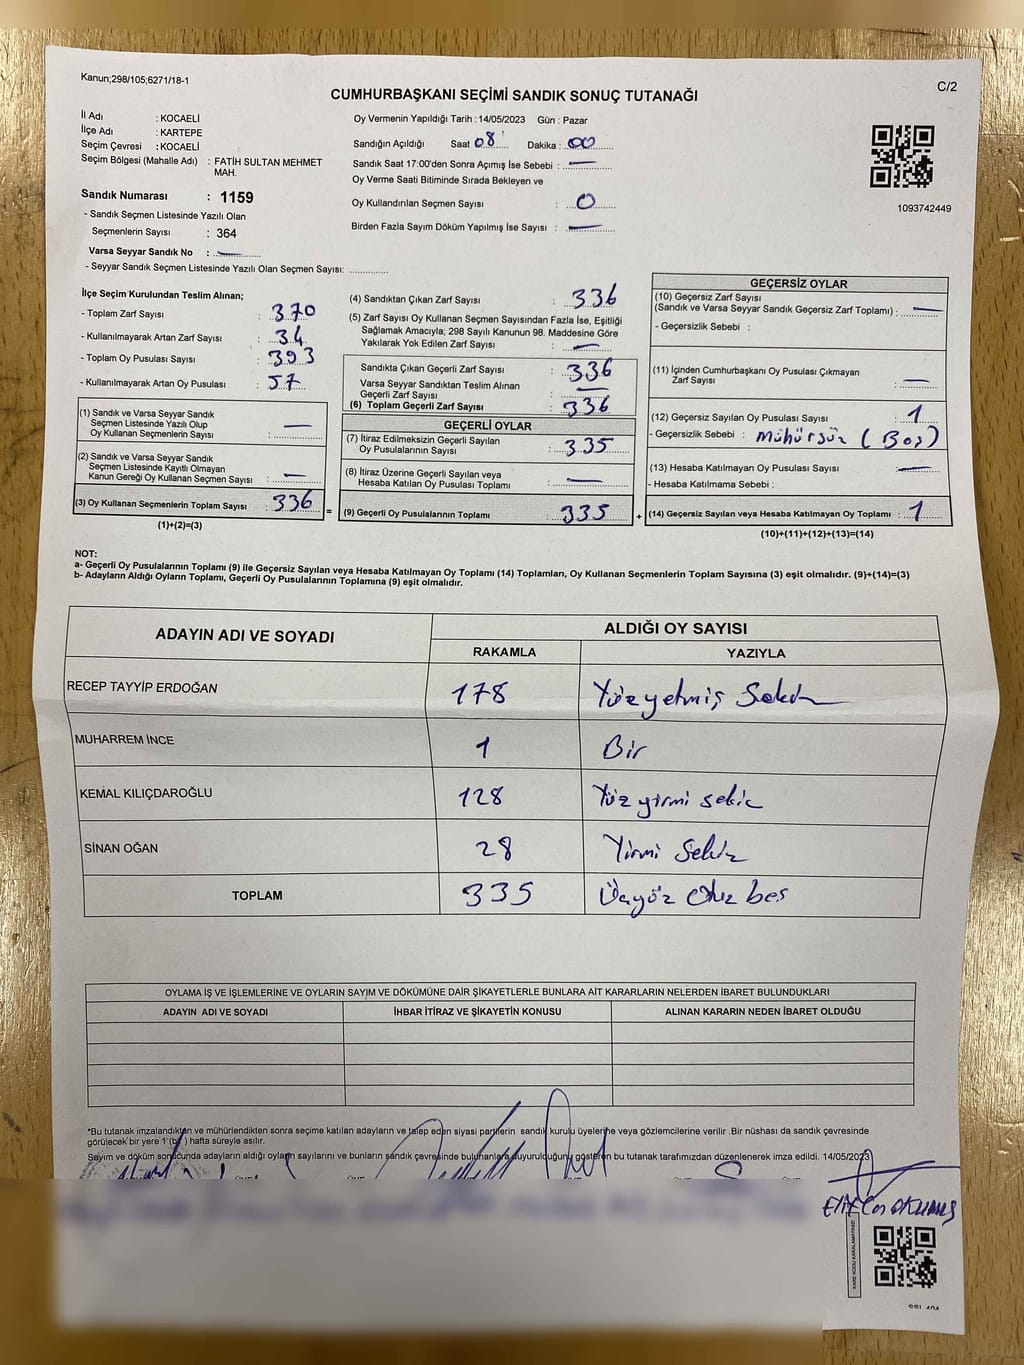 Kanun;298/105;6271/18-1
C/2
CUMHURBAŞKANI SEÇİMİ SANDIK SONUÇ TUTANAĞI
İl Adı : KOCAELİ
İlçe Adı : KARTEPE
Seçim Çevresi : KOCAELİ
Seçim Bölgesi (Mahalle Adı) : FATİH SULTAN MEHMET
MAH.
Sandık Numarası : 1159
- Sandık Seçmen Listesinde Yazılı Olan
Seçmenlerin Sayısı : 364
Varsa Seyyar Sandık No : —
- Seyyar Sandık Seçmen Listesinde Yazılı Olan Seçmen Sayısı: ............
Oy Vermenin Yapıldığı Tarih : 14/05/2023 Gün : Pazar
Sandığın Açıldığı Saat 08 Dakika : 00
Sandık Saat 17:00'den Sonra Açımış İse Sebebi : —
Oy Verme Saati Bitiminde Sırada Bekleyen ve
Oy Kullandırılan Seçmen Sayısı : 0
Birden Fazla Sayım Döküm Yapılmış İse Sayısı : —
1093742449
İlçe Seçim Kurulundan Teslim Alınan;
- Toplam Zarf Sayısı : 370
- Kullanılmayarak Artan Zarf Sayısı : 34
- Toplam Oy Pusulası Sayısı : 393
- Kullanılmayarak Artan Oy Pusulası : 57
(1) Sandık ve Varsa Seyyar Sandık
Seçmen Listesinde Yazılı Olup
Oy Kullanan Seçmenlerin Sayısı : —
(2) Sandık ve Varsa Seyyar Sandık
Seçmen Listesinde Kayıtlı Olmayan
Kanun Gereği Oy Kullanan Seçmen Sayısı : —
(3) Oy Kullanan Seçmenlerin Toplam Sayısı : 336 =
(1)+(2)=(3)
(4) Sandıktan Çıkan Zarf Sayısı : 336
(5) Zarf Sayısı Oy Kullanan Seçmen Sayısından Fazla İse, Eşitliği
Sağlamak Amacıyla; 298 Sayılı Kanunun 98. Maddesine Göre
Yakılarak Yok Edilen Zarf Sayısı : —
Sandıkta Çıkan Geçerli Zarf Sayısı : 336
Varsa Seyyar Sandıktan Teslim Alınan
Geçerli Zarf Sayısı : —
(6) Toplam Geçerli Zarf Sayısı : 336
GEÇERLİ OYLAR
(7) İtiraz Edilmeksizin Geçerli Sayılan
Oy Pusulalarının Sayısı : 335
(8) İtiraz Üzerine Geçerli Sayılan veya
Hesaba Katılan Oy Pusulası Toplamı : —
(9) Geçerli Oy Pusulalarının Toplamı : 335 +
GEÇERSİZ OYLAR
(10) Geçersiz Zarf Sayısı
(Sandık ve Varsa Seyyar Sandık Geçersiz Zarf Toplamı) : —
- Geçersizlik Sebebi :
(11) İçinden Cumhurbaşkanı Oy Pusulası Çıkmayan
Zarf Sayısı : —
(12) Geçersiz Sayılan Oy Pusulası Sayısı : 1
- Geçersizlik Sebebi : Mühürsüz (Boş)
(13) Hesaba Katılmayan Oy Pusulası Sayısı : —
- Hesaba Katılmama Sebebi :
(14) Geçersiz Sayılan veya Hesaba Katılmayan Oy Toplamı : 1
(10)+(11)+(12)+(13)=(14)
NOT:
a- Geçerli Oy Pusulalarının Toplamı (9) ile Geçersiz Sayılan veya Hesaba Katılmayan Oy Toplamı (14) Toplamları, Oy Kullanan Seçmenlerin Toplam Sayısına (3) eşit olmalıdır. (9)+(14)=(3)
b- Adayların Aldığı Oyların Toplamı, Geçerli Oy Pusulalarının Toplamına (9) eşit olmalıdır.
ADAYIN ADI VE SOYADI
ALDIĞI OY SAYISI
RAKAMLA YAZIYLA
RECEP TAYYİP ERDOĞAN 178 Yüzyetmiş Sekiz
MUHARREM İNCE 1 Bir
KEMAL KILIÇDAROĞLU 128 Yüz yirmi sekiz
SİNAN OĞAN 28 Yirmi Sekiz
TOPLAM 335 Üçyüz Otuz beş
OYLAMA İŞ VE İŞLEMLERİNE VE OYLARIN SAYIM VE DÖKÜMÜNE DAİR ŞİKAYETLERLE BUNLARA AİT KARARLARIN NELERDEN İBARET BULUNDUKLARI
ADAYIN ADI VE SOYADI İHBAR İTİRAZ VE ŞİKAYETİN KONUSU ALINAN KARARIN NEDEN İBARET OLDUĞU
*Bu tutanak imzalandıkten ve mühürlendikten sonra seçime katılan adayların ve talep eden siyasi partilerin sandık kurulu üyelerine veya gözlemcilerine verilir .Bir nüshası da sandık çevresinde
görülecek bir yere 1 (bir) hafta süreyle asılır.
Sayım ve döküm sonucunda adayların aldığı oyların sayılarını ve bunların sandık çevresinde bulunanlara duyurulduğunu gösteren bu tutanak tarafımızdan düzenlenerek imza edildi. 14/05/2023